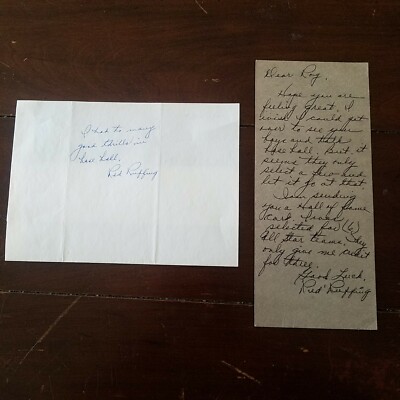 I had to many
good thrills in
base ball.
Red Ruffing
Dear Roy,
Hope you are
feeling great. I
wish I could get
over to see your
boys and talk
base ball. But it
seems they only
select a few and
let it go at that.
I am sending
you a Hall of Fame
Card. I was
selected for (6)
All Star teams. They
only give me credit
for three.
Good Luck,
Red Ruffing